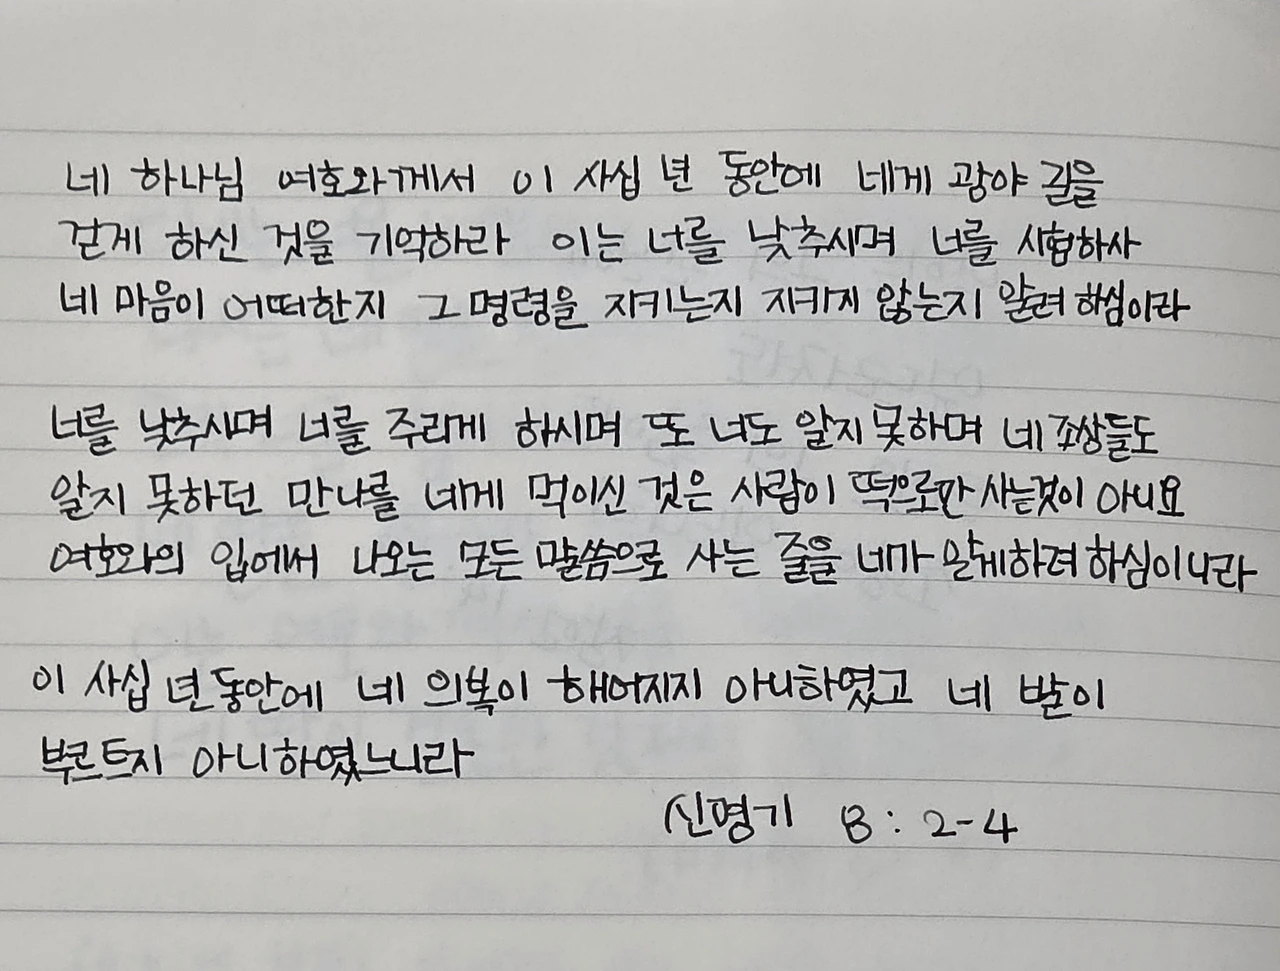 네 하나님 여호와께서 이 사십 년 동안에 네게 광야 길을
걷게 하신 것을 기억하라 이는 너를 낮추시며 너를 시험하사
네 마음이 어떠한지 그 명령을 지키는지 지키지 않는지 알려 하심이라
너를 낮추시며 너를 주리게 하시며 또 너도 알지 못하며 네 조상들도
알지 못하던 만나를 네게 먹이신 것은 사람이 떡으로만 사는것이 아니요
여호와의 입에서 나오는 모든 말씀으로 사는 줄을 네가 알게하려 하심이니라
이 사십 년 동안에 네 의복이 해어지지 아니하였고 네 발이
부르트지 아니하였느니라
신명기 8 : 2-4